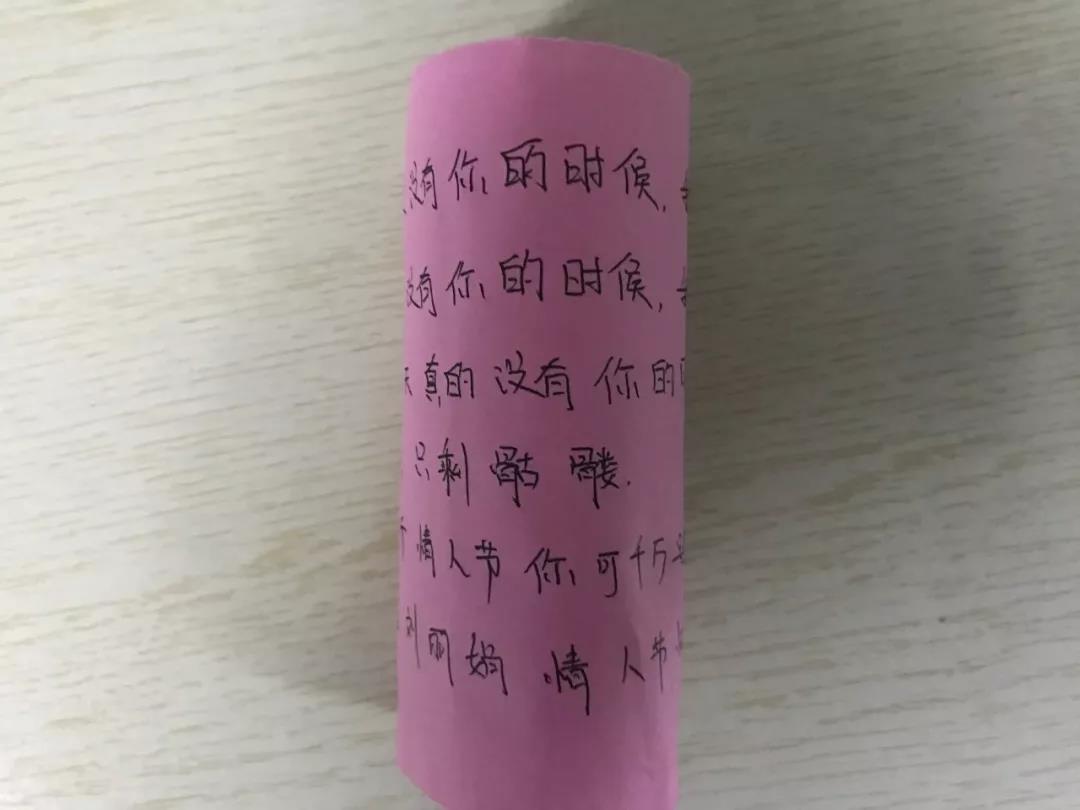 没有你的时候,
没有你的时候,
真的没有你的
只剩骷髅.
情人节你可千万
刘丽娟 情人节